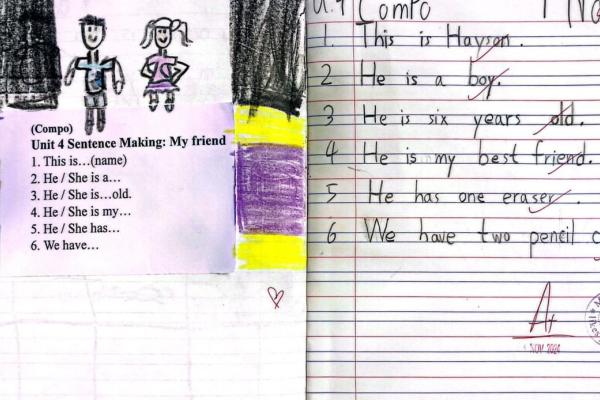 (Compo)
Unit 4 Sentence Making: My friend
1. This is…(name)
2. He / She is a…
3. He / She is…old.
4. He / She is my…
5. He / She has…
6. We have…
Compo
1. This is Hayson.
2 He is a boy.
3 He is six years old.
4 He is my best friend.
5 He has one eraser.
6 We have two pencil
A+
NOV 2024